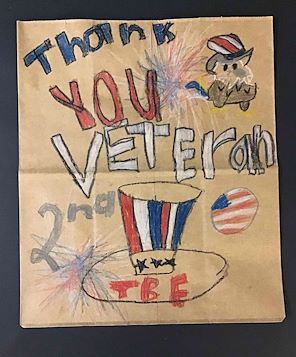 Thank
YOU
VETERan
2nd
TBE